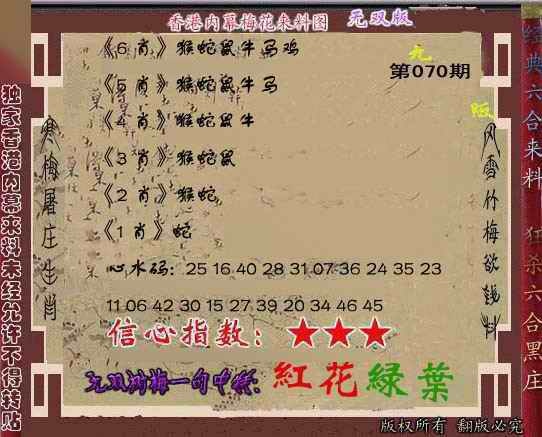 香港内幕梅花来料图 无双版
《6肖》猴蛇鼠牛马鸡
第070期
《5肖》猴蛇鼠牛马
《4肖》猴蛇鼠牛
《3肖》猴蛇鼠
《2肖》猴蛇
《1肖》蛇
心水码：25 16 40 28 31 07 36 24 35 23
11 06 42 30 15 27 39 20 34 46 45
信心指数：★★★
紅花緑葉
独家香港内幕来料未经允许不得转贴
寒梅屠庄生肖
风雪竹梅欲钱料
经典六合来料
狂杀六合黑庄
版权所有 翻版必究